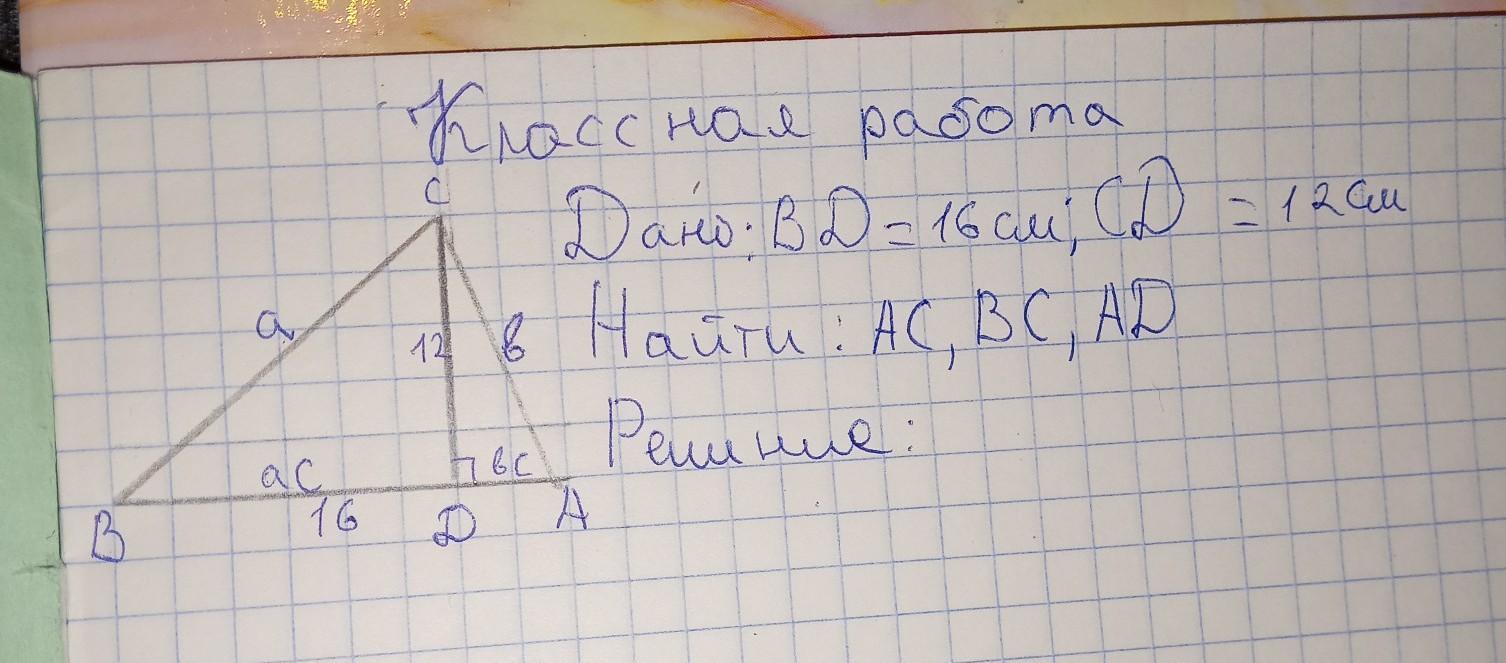 Классная работа
C
Дано: BD = 16 см; CD = 12 см
a
12
в
Найти: AC, BC, AD
Решение:
aC
вC
B
16
D
A